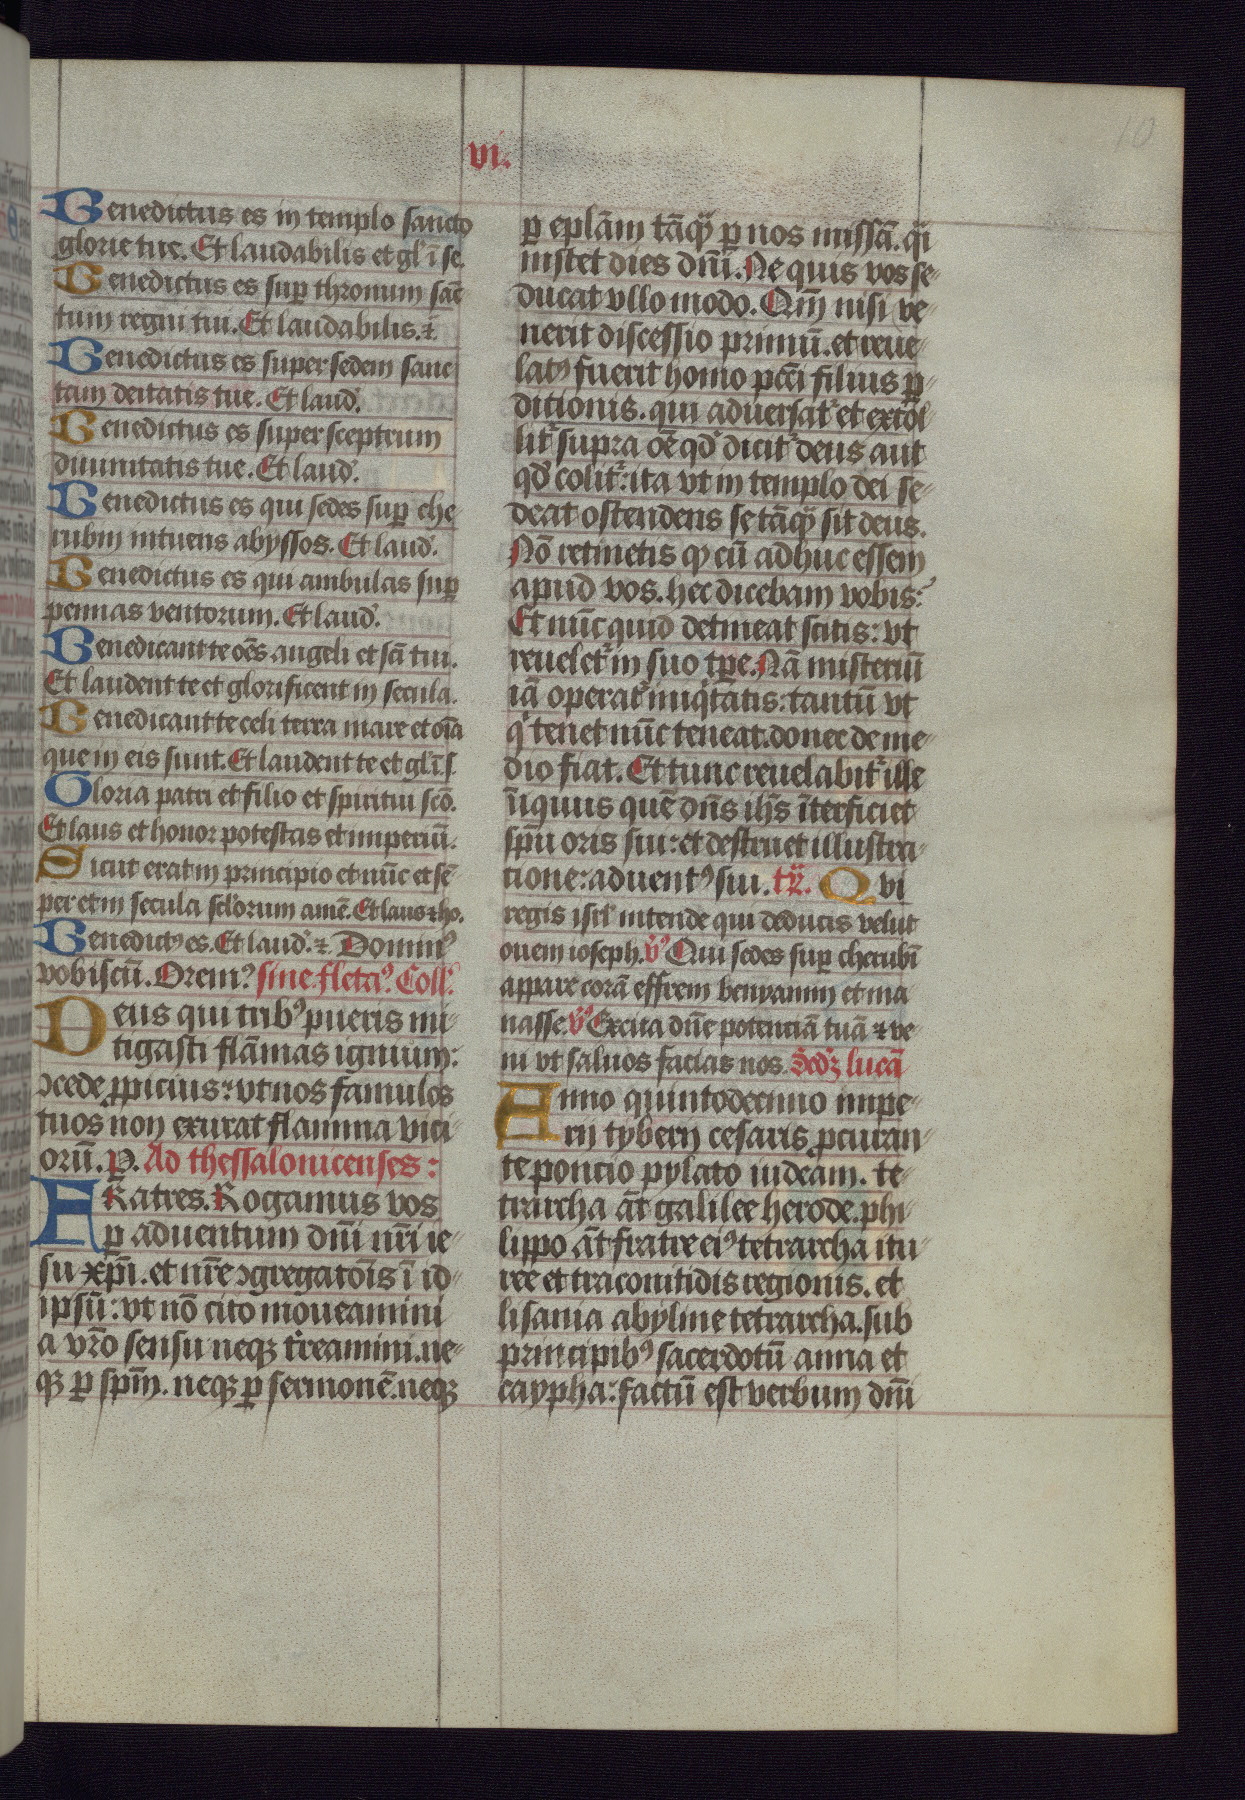 10
vi.
Benedictus es in templo sancto
glorie tue. Et laudabilis et gl' ī se.
Benedictus es suꝑ thronum sāc
tum regni tui. Et laudabilis. ⁊
Benedictus es super sedem sanc
tam deitatis tue. Et laud'.
Benedictus es super sceptrum
diuinitatis tue. Et laud'.
Benedictus es qui sedes suꝑ che-
rubin intuens abyssos. Et laud'.
Benedictus es qui ambulas suꝑ
pennas ventorum. Et laud'.
Benedicant te oēs angeli et scī tui.
Et laudent te et glorificent in secula.
Benedicant te celi terra mare et oīa
que in eis sunt. Et laudent te et gl' ī s.
Gloria patri et filio et spiritui scō.
Et laus et honor potestas et imperiū.
Sicut erat in principio et nūc et sē-
per et in secula sclorum amē. Et laus ⁊ ho.
Benedictꝰ es. Et laud'. ⁊ Dominꝰ
vobiscū. Oremꝰ sine flectaꝰ. Coll'.
Deus qui tribꝰ pueris mi-
tigasti flāmas ignium:
ꝯcede ꝓpicius: vt nos famulos
tuos non exurat flamma vici-
orū. P. Ad thessalonicenses:
FRatres. Rogamus vos
ꝑ aduentum dn̄i nr̄i ie-
su xp̄i. et nr̄e ꝯgregatōis ī id-
ipsū: vt nō cito moueamini
a vr̄o sensu neqꝫ t'reamini. ne-
qꝫ ꝑ spm̄. neqꝫ ꝑ sermonē. neqꝫ
ꝑ eplām tāqꝫ ꝑ nos missā. q̄i
instet dies dn̄i. Ne quis vos se-
ducat vllo modo. Qm̄ nisi ve-
nerit discessio primū. et reue-
latꝰ fuerit homo pcc̄i filius ꝑ-
ditionis. qui aduersat' et extol-
lit' supra oē qd' dicit' deus aut
qd' colit': ita vt in templo dei se-
deat ostendens se tāqꝫ sit deus.
Nō retinetis ꝙ cū adhuc essem
apud vos. hec dicebam vobis:
Et nūc quid detineat scitis: vt
reuelet' in suo tp̄e. Nā misteriū
iā operat' iniqtātis: tantū vt
q' tenet nūc teneat. donec de me-
dio fiat. Et tunc reuelabit' ille
īiquus quē dn̄s ih̄s īterficiet
spū oris sui: et destruet illustra-
tione: aduentꝰ sui. tr̄. Qvi
regis isrl' intende qui deducis velut
ouem ioseph. v̄ꝰ Qui sedes suꝑ cherubī
appare corā effrem benyamin et ma
nasse. v̄ꝰ Excita dn̄e potenciā tuā ⁊ ve-
ni vt saluos facias nos. Sedꝫ lucā
Anno quintodecimo impe-
rij tyberij cesaris ꝓcuran-
te poncio pylato iudeam. te-
trarcha āt galilee herode. phi-
lippo āt fratre eiꝰ tetrarcha itu-
ree et traconitidis regionis. et
lisania abyline tetrarcha. sub
principibꝰ sacerdotū anna et
caypha: factū est verbum dn̄i